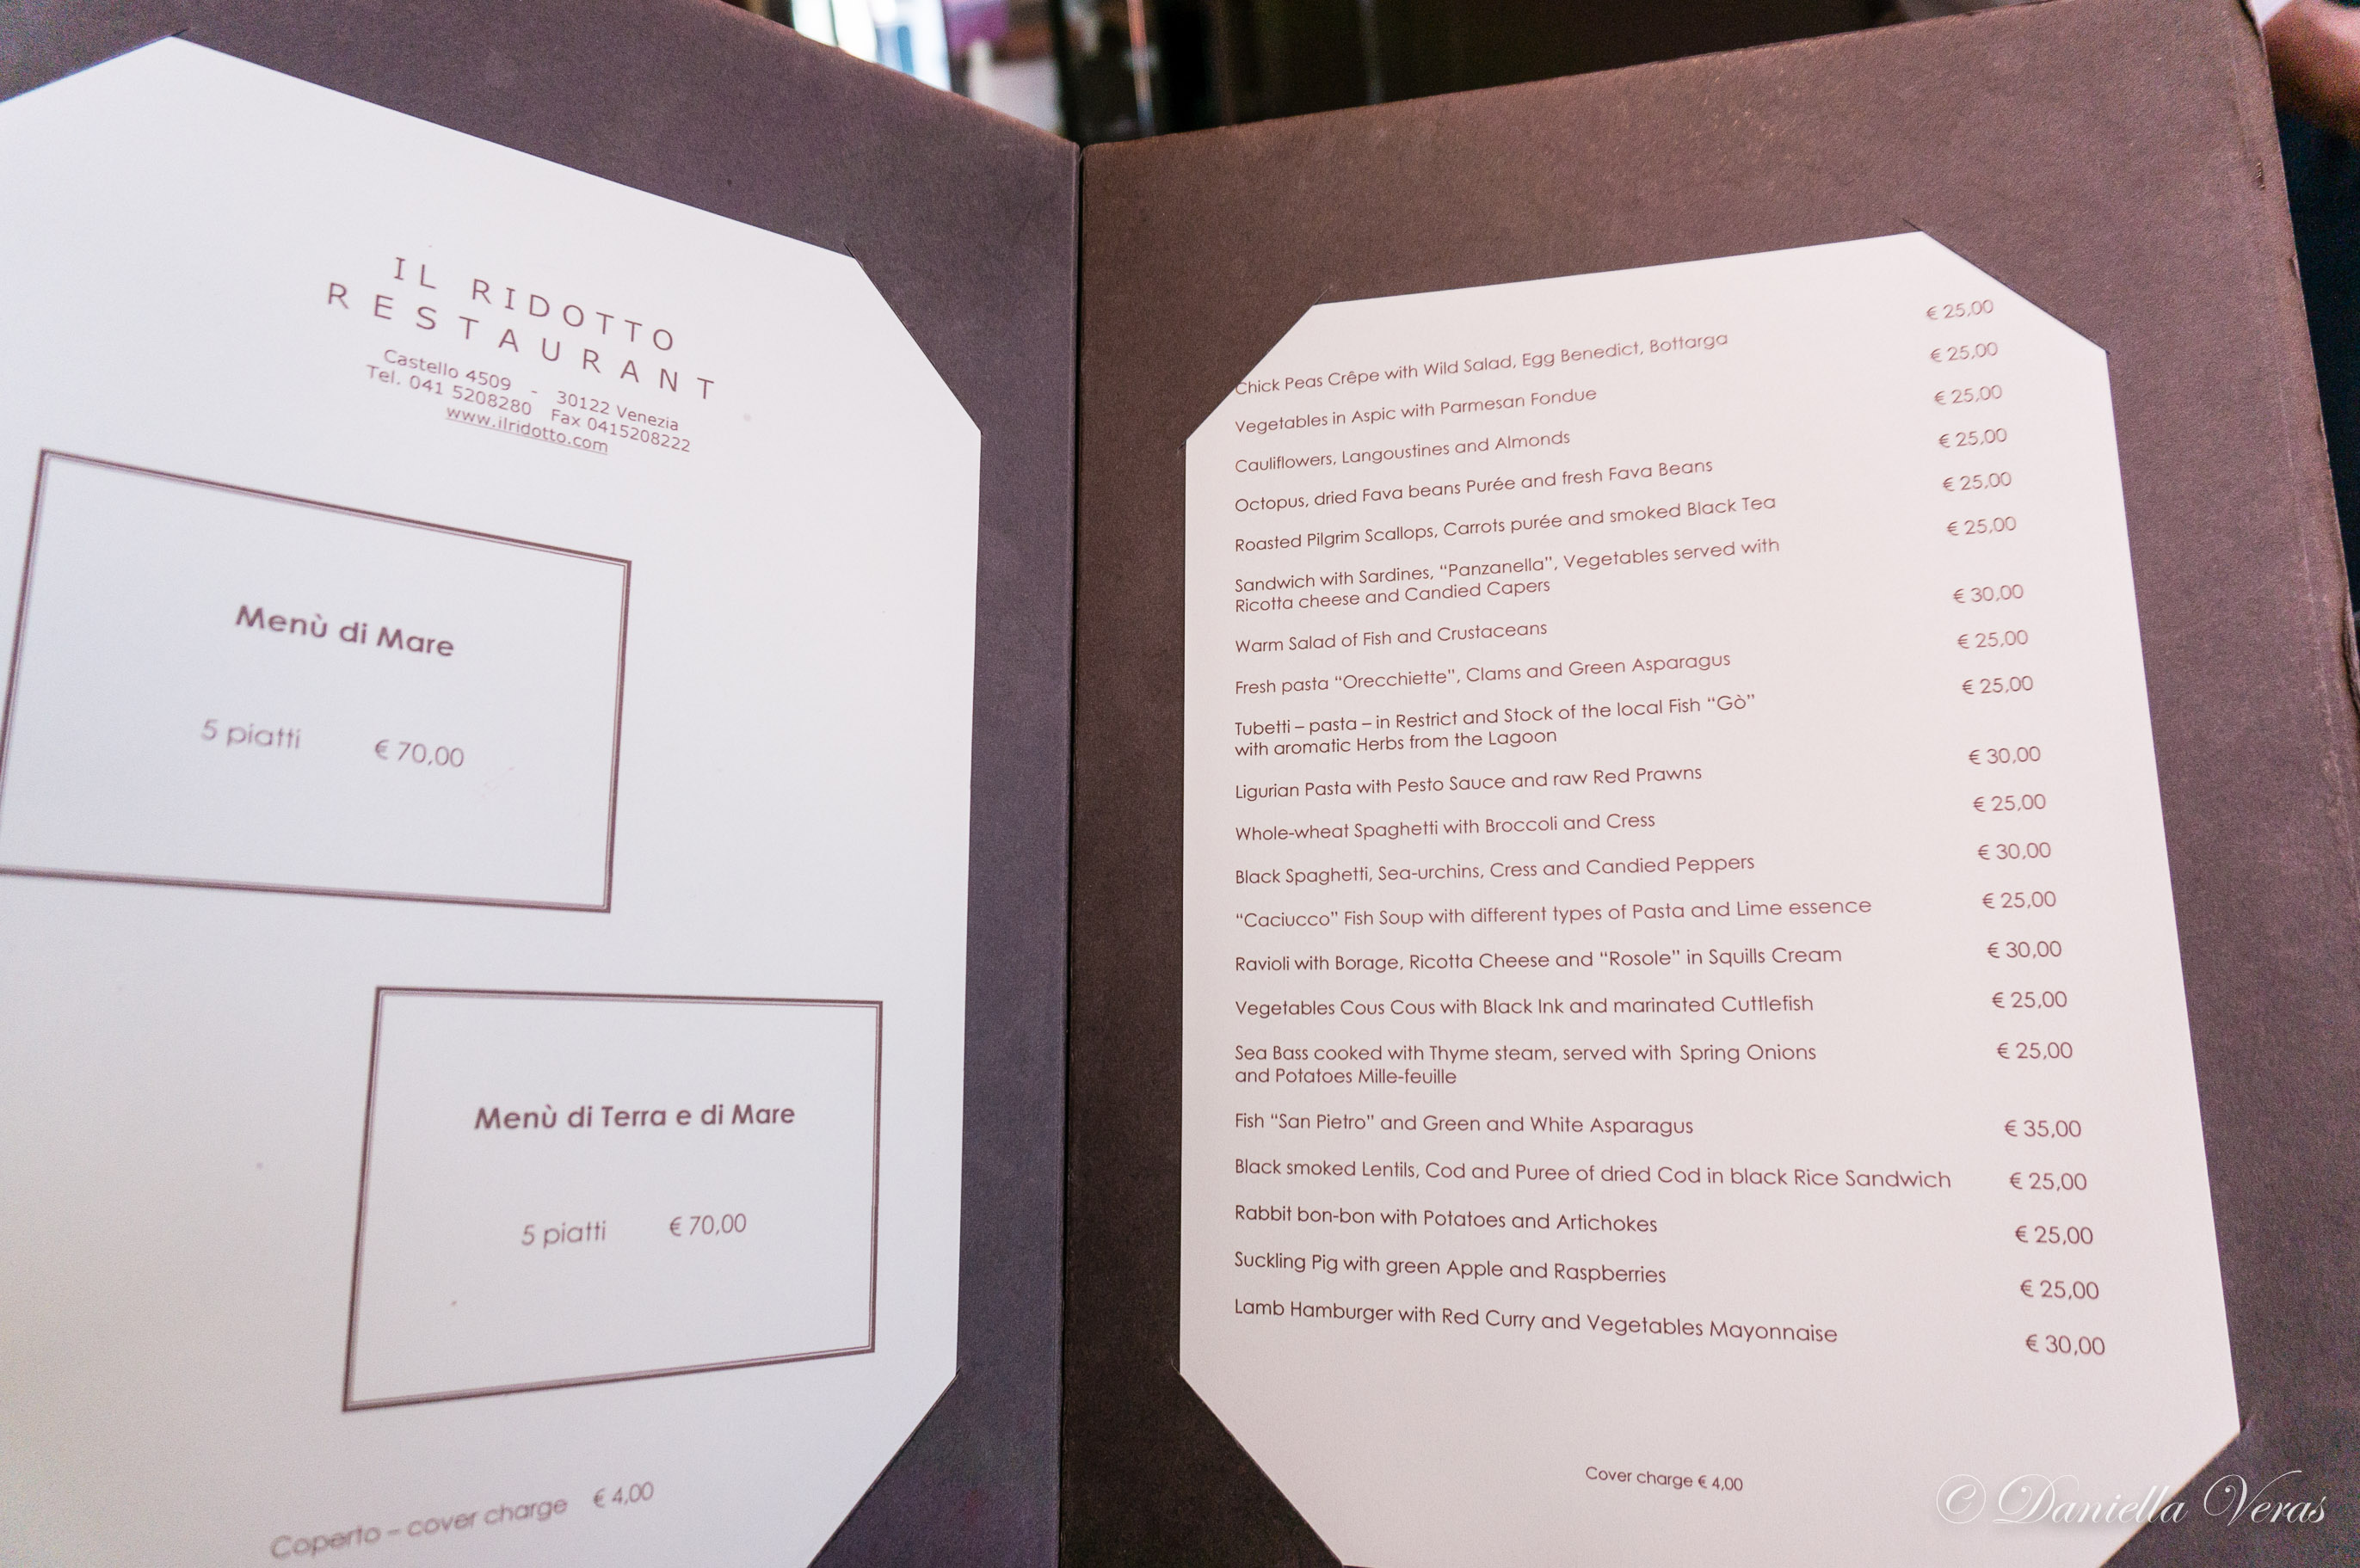 IL RIDOTTO
RESTAURANT
Castello 4509 - 30122 Venezia
Tel. 041 5208280 Fax 0415208222
www.ilridotto.com
Menù di Mare
5 piatti € 70,00
Menù di Terra e di Mare
5 piatti € 70,00
Coperto – cover charge € 4,00
Chick Peas Crêpe with Wild Salad, Egg Benedict, Bottarga € 25,00
Vegetables in Aspic with Parmesan Fondue € 25,00
Cauliflowers, Langoustines and Almonds € 25,00
Octopus, dried Fava beans Purée and fresh Fava Beans € 25,00
Roasted Pilgrim Scallops, Carrots purée and smoked Black Tea € 25,00
Sandwich with Sardines, “Panzanella”, Vegetables served with € 25,00
Ricotta cheese and Candied Capers
Warm Salad of Fish and Crustaceans € 30,00
Fresh pasta “Orecchiette”, Clams and Green Asparagus € 25,00
Tubetti – pasta – in Restrict and Stock of the local Fish “Gò” € 25,00
with aromatic Herbs from the Lagoon
Ligurian Pasta with Pesto Sauce and raw Red Prawns € 30,00
Whole-wheat Spaghetti with Broccoli and Cress € 25,00
Black Spaghetti, Sea-urchins, Cress and Candied Peppers € 30,00
“Caciucco” Fish Soup with different types of Pasta and Lime essence € 25,00
Ravioli with Borage, Ricotta Cheese and “Rosole” in Squills Cream € 30,00
Vegetables Cous Cous with Black Ink and marinated Cuttlefish € 25,00
Sea Bass cooked with Thyme steam, served with Spring Onions € 25,00
and Potatoes Mille-feuille
Fish “San Pietro” and Green and White Asparagus € 35,00
Black smoked Lentils, Cod and Puree of dried Cod in black Rice Sandwich € 25,00
Rabbit bon-bon with Potatoes and Artichokes € 25,00
Suckling Pig with green Apple and Raspberries € 25,00
Lamb Hamburger with Red Curry and Vegetables Mayonnaise € 30,00
Cover charge € 4,00
© Daniella Veras